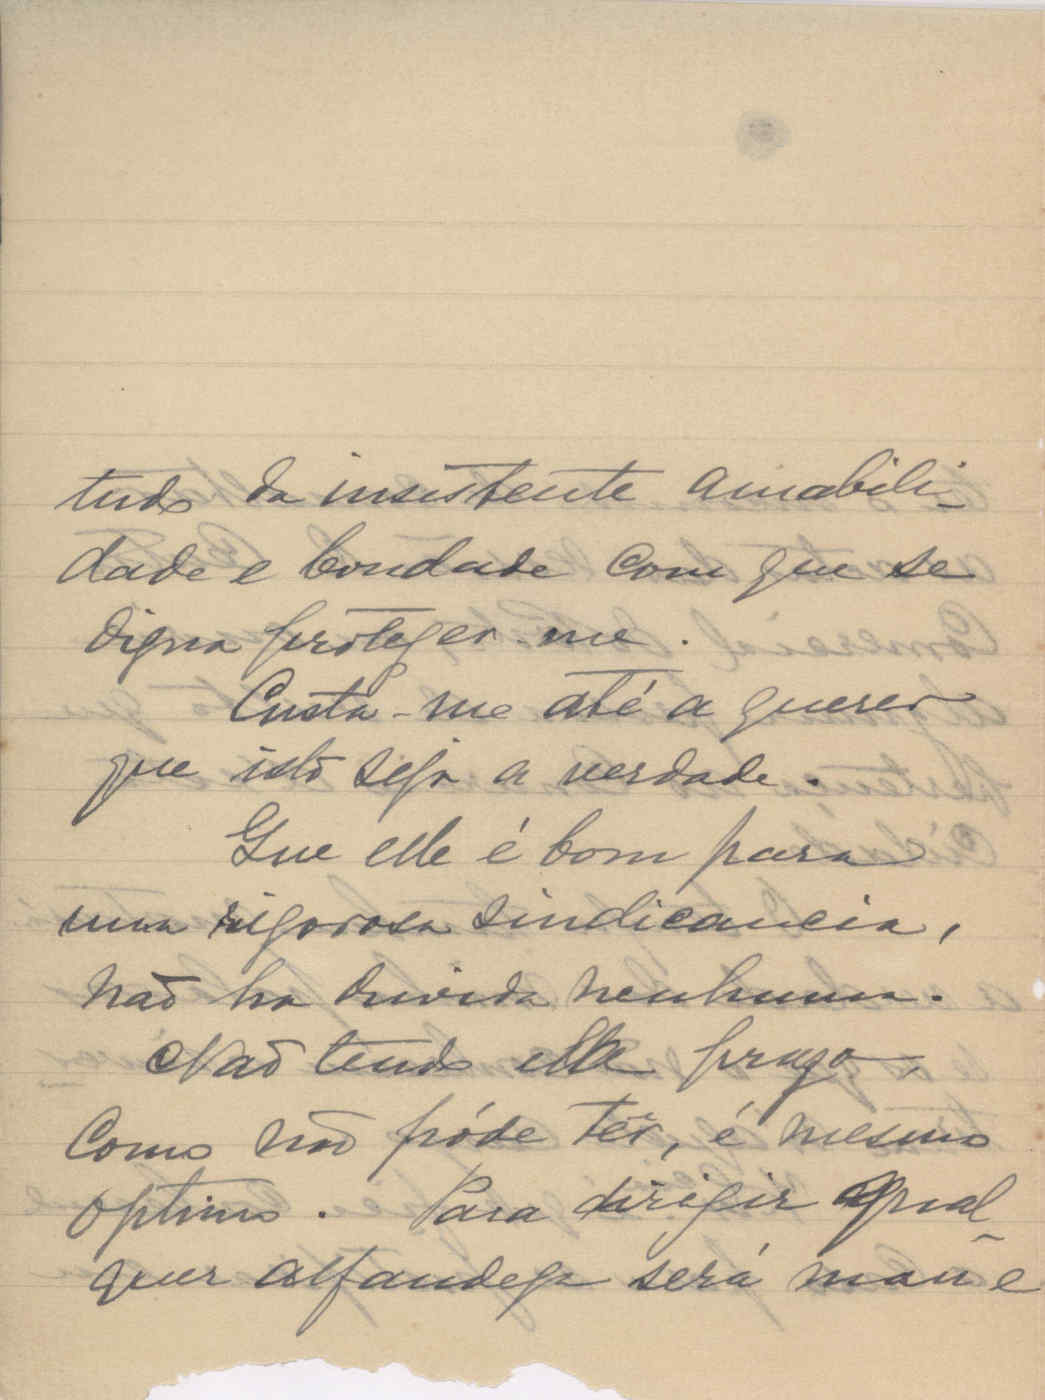 tudo da insistente amabili-
dade e bondade com que se
digna proteger-me.
Custa-me até a querer
que isto seja a verdade.
Que elle é bom para
uma rigorosa sindicancia,
não ha duvida nenhuma.
Não tendo elle prazo,
como não póde têr, é mesmo
optimo. Para dirigir qual-
quer alfandega será mau e